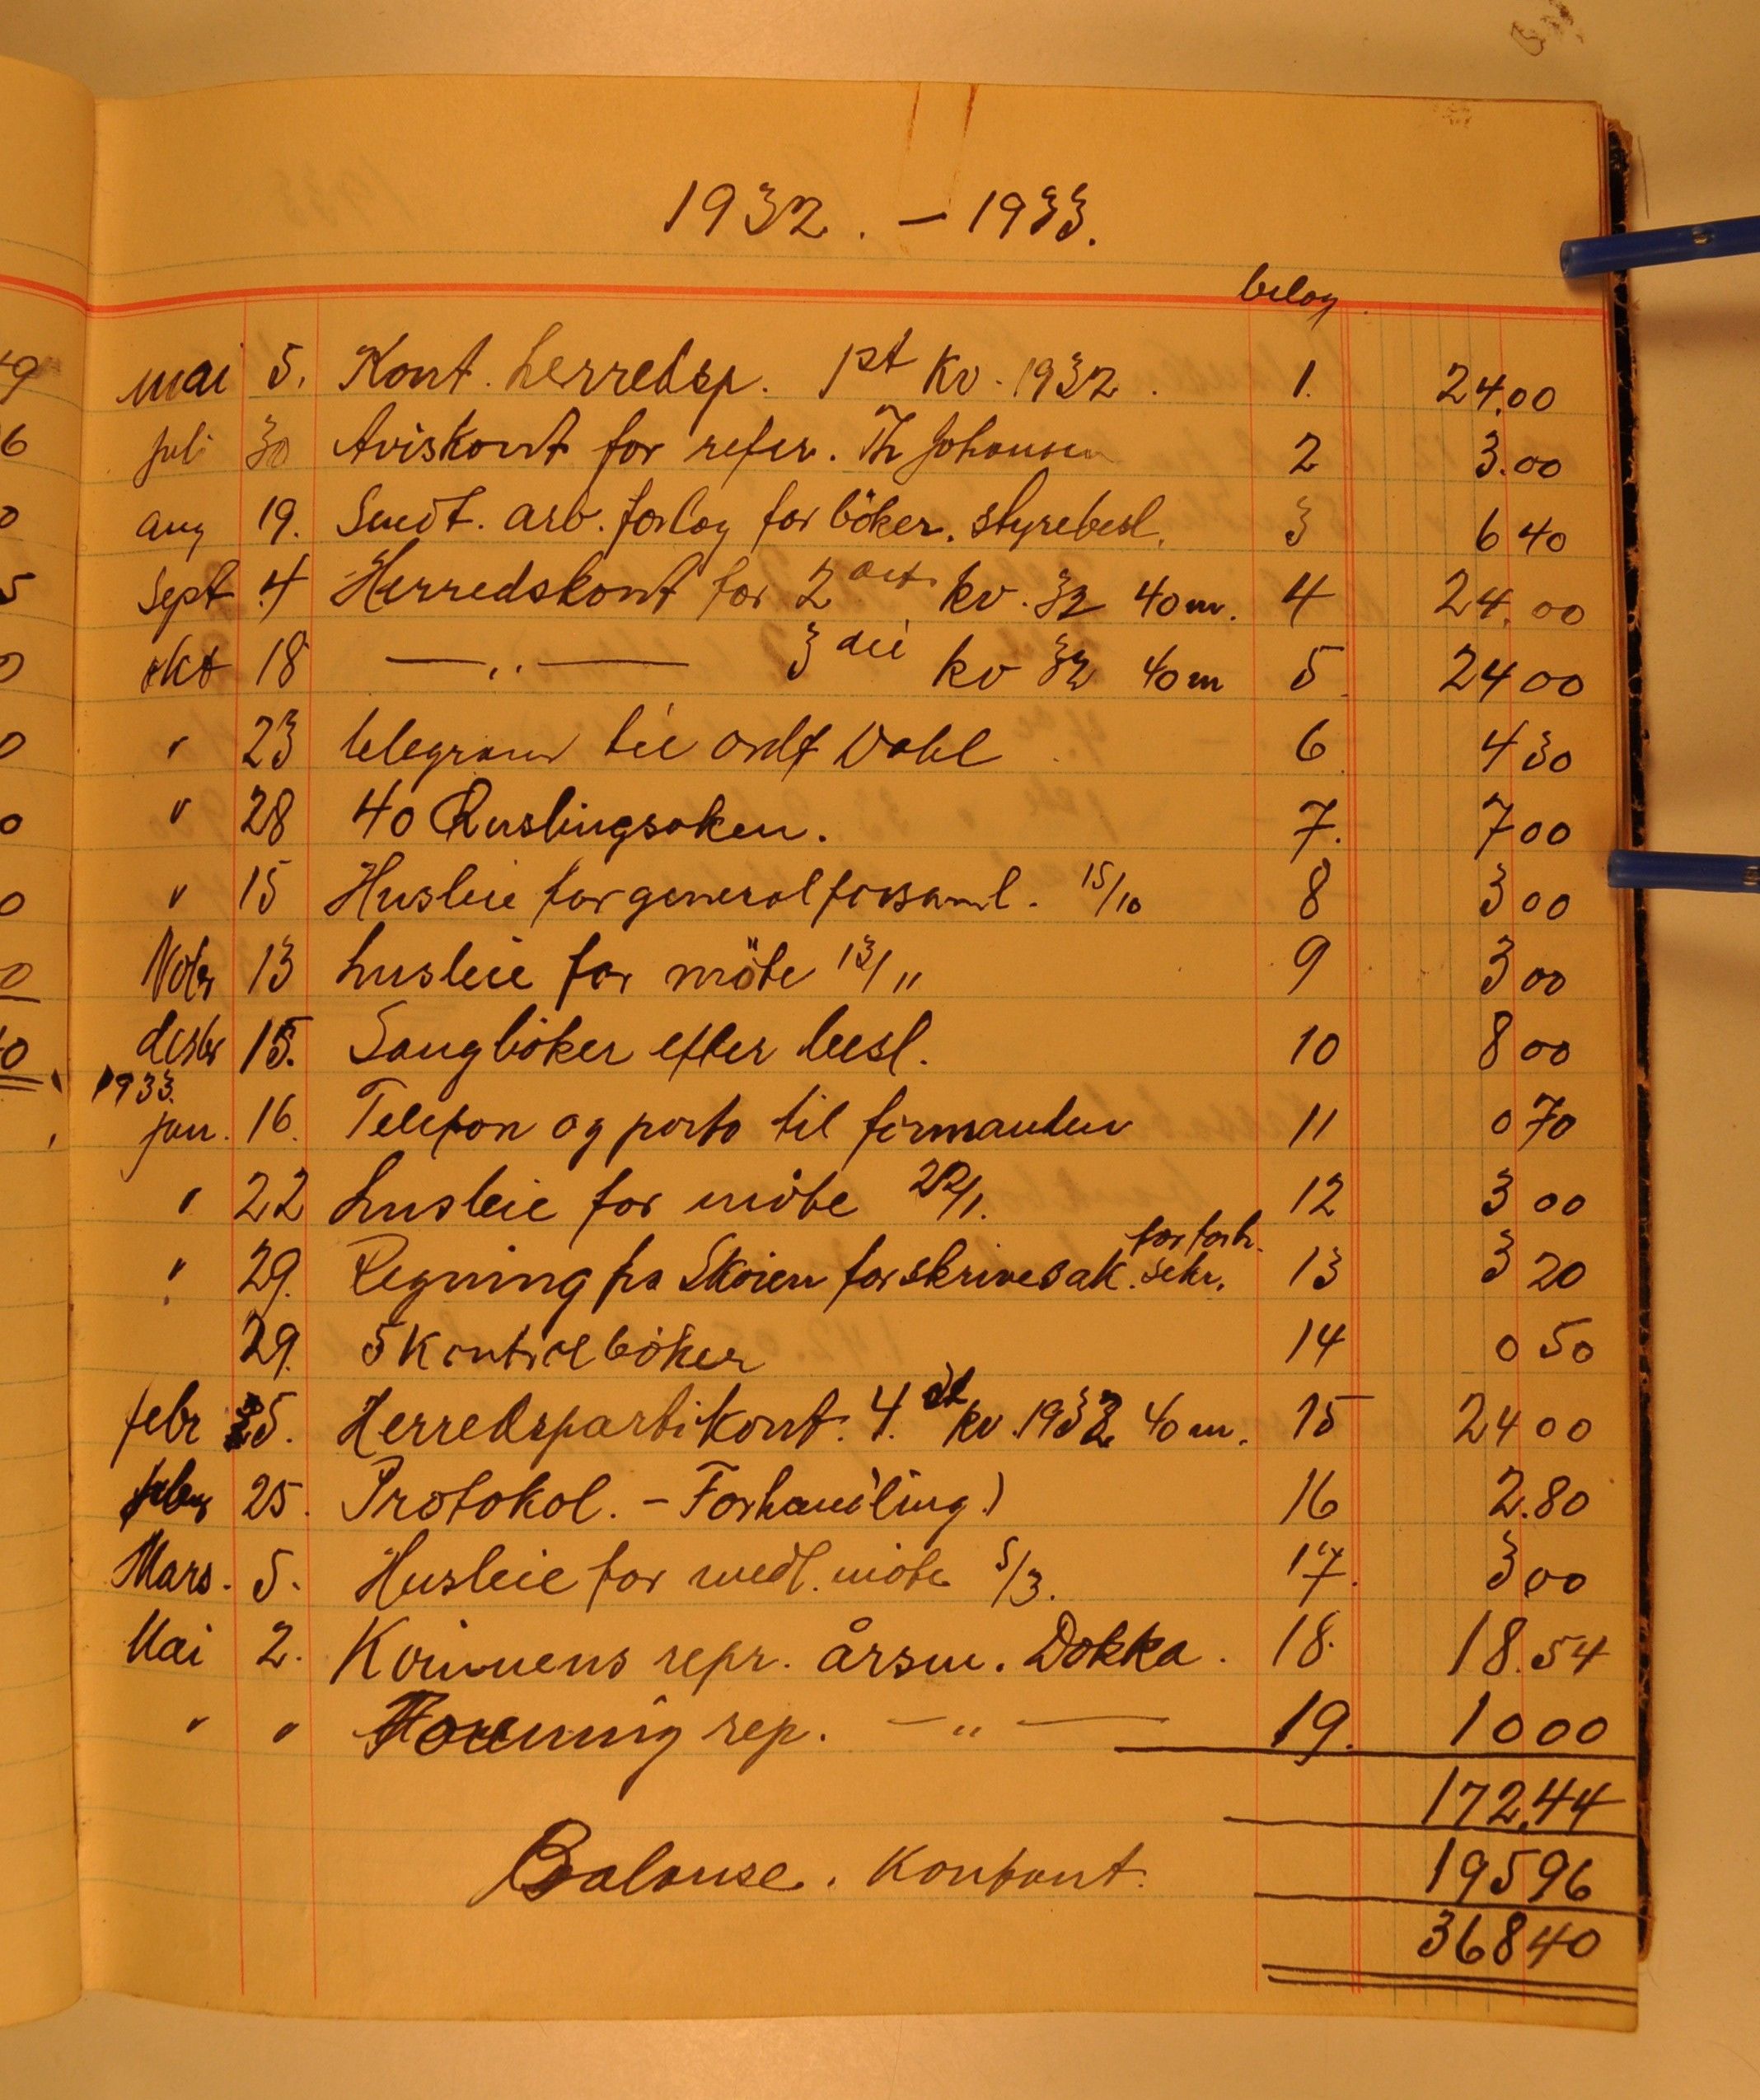 1932. - 1933.
belag
mai 5. Kont. herredsp. 1st kv. 1932. 1. 24.00
juli 30 Aviskont for refer. Th Johansen 2 3.00
aug 19. Sendt. arb. forlag for böker. styrebesl. 3 6 40
Sept. 4 Herredskont for 2 det kv. 32 40 m. 4 24.00
okt 18 —〃— 3 die kv 32 40 m 5 24 00
〃 23 telegram til Dahl 6 4 30
〃 28 40 Kuslingsaken. 7. 7 00
〃 15 Husleie for generalforsaml. 15/10 8 3 00
Nobr 13 husleie for möte 13/11 9 3 00
desbr 15. Sangböker efter besl. 10 8 00
1933.
jan. 16. Telefon og porto til formanden 11 0 70
〃 22 husleie for möte 22/1. 12 3 00
for forh.
〃 29. Regning fra Skoien for skrivesak. sekr. 13 3 20
29. 5 Kontrolböker 14 0 50
febr 25. Herredspartikont. 4. de kv. 1932 40 m. 15 24 00
febr 25. Protokol. - Forhandling) 16 2.80
Mars. 5. Husleie for medl. möte 5/3. 17. 3 00
Mai 2. Kvinnens repr. årsm. Dokka. 18. 18.54
〃 〃 rep. —〃— 19. 10 00
172.44
Balanse. Kontant. 195 96
368 40